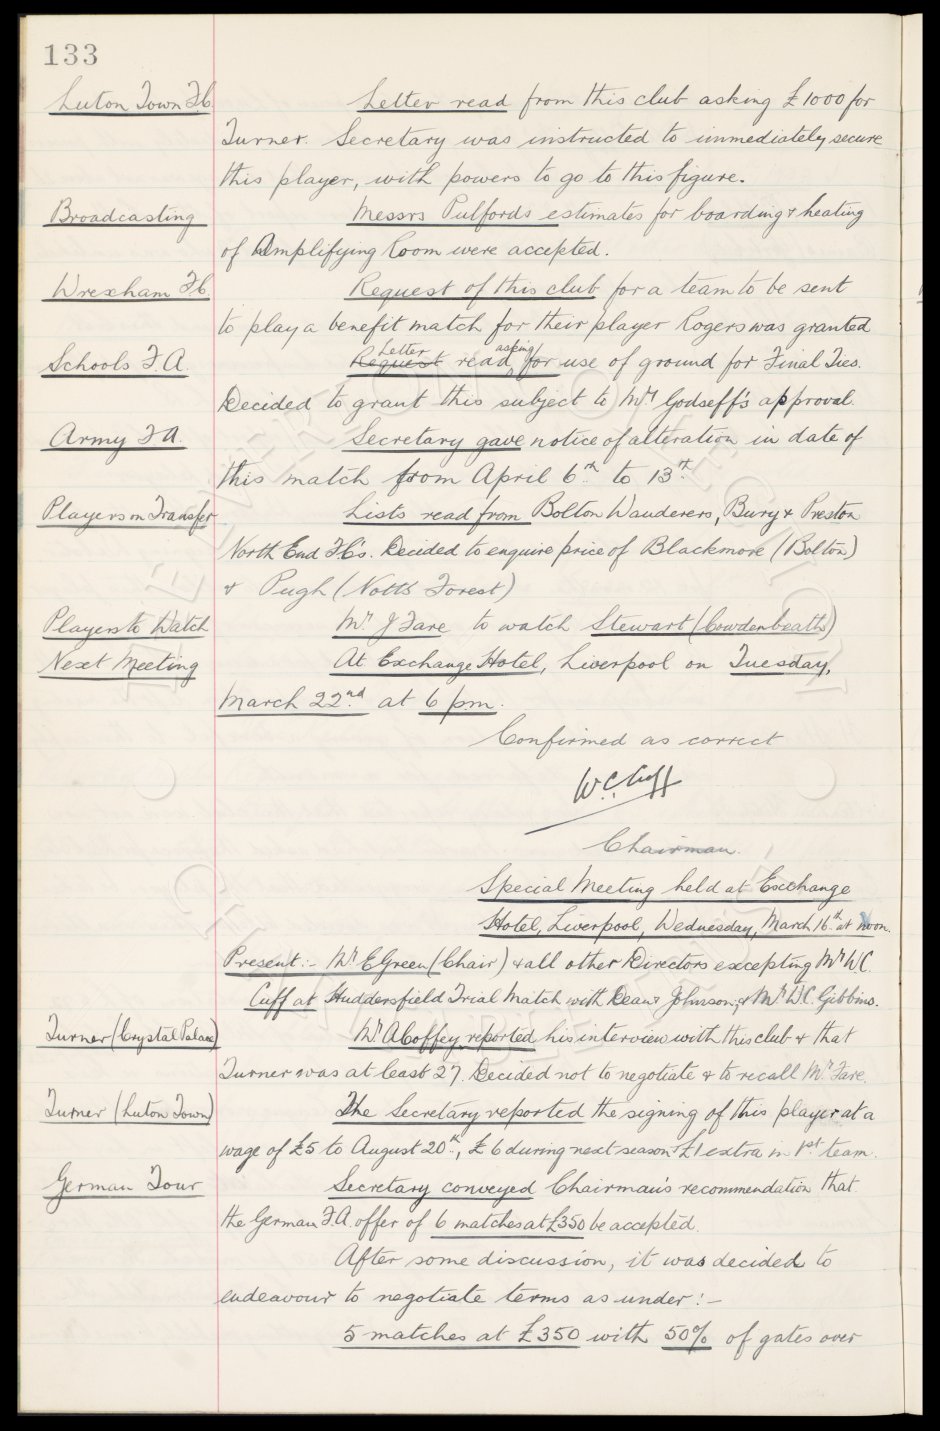 133
Luton Town F.C. Letter read from this club asking £1000 for
Turner. Secretary was instructed to immediately secure
this player, with powers to go to this figure.
Broadcasting Messrs Pulfords estimates for boarding & heating
of Amplifying Room were accepted.
Wrexham F.C. Request of this club for a team to be sent
to play a benefit match for their player Rogers was granted
Schools F.A. Request Letter read, asking for use of ground for Final Ties.
Decided to grant this subject to Mr Godseff's approval.
Army F.A. Secretary gave notice of alteration in date of
this match from April 6th to 13th.
Players on Transfer Lists read from Bolton Wanderers, Bury & Preston
North End F.C's. Decided to enquire price of Blackmore (Bolton)
& Pugh (Notts Forest)
Players to Watch Mr J Fare to watch Stewart (Cowdenbeath)
Next Meeting At Exchange Hotel, Liverpool on Tuesday,
March 22nd at 6 pm.
Confirmed as correct
W.C. Cuff
Chairman.
Special Meeting held at Exchange
Hotel, Liverpool, Wednesday, March 16th at Noon.
Present:- Mr E Green (Chair) & all other Directors excepting Mr W.C.
Cuff at Huddersfield Trial Match with Dean & Johnson, & Mr W.C. Gibbins.
Turner (Crystal Palace) Mr A Coffey reported his interview with this club & that
Turner was at least 27. Decided not to negotiate & to recall Mr Fare.
Turner (Luton Town) The Secretary reported the signing of this player at a
wage of £5 to August 20th, £6 during next season & £1 extra in 1st team.
German Tour Secretary conveyed Chairman's recommendation that
the German F.A. offer of 6 matches at £350 be accepted.
After some discussion, it was decided to
endeavour to negotiate terms as under:-
5 matches at £350 with 50% of gates over